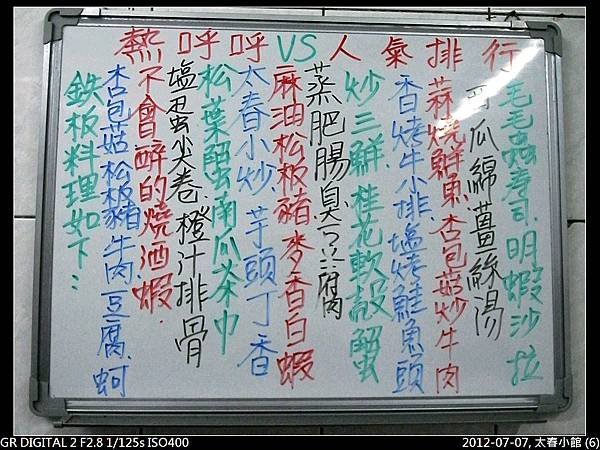 熱呼呼VS人氣排行
毛毛蟲壽司.明蝦沙拉
西瓜綿薑絲湯
蒜燒鮮魚.杏包菇炒牛肉
香烤牛小排.塩烤鮭魚頭
炒三鮮.桂花軟殼蟹
蒸肥腸臭豆腐
麻油松板豬.麥香白蝦
太春小炒.芋頭丁香
松葉蟹南瓜茶巾
塩蛋尖卷.橙汁排骨
不會醉的燒酒蝦.
杏包菇.松板豬.牛肉.豆腐.蚵
鉄板料理如下::
GR DIGITAL 2 F2.8 1/125s ISO400
2012-07-07, 太春小館 (6)